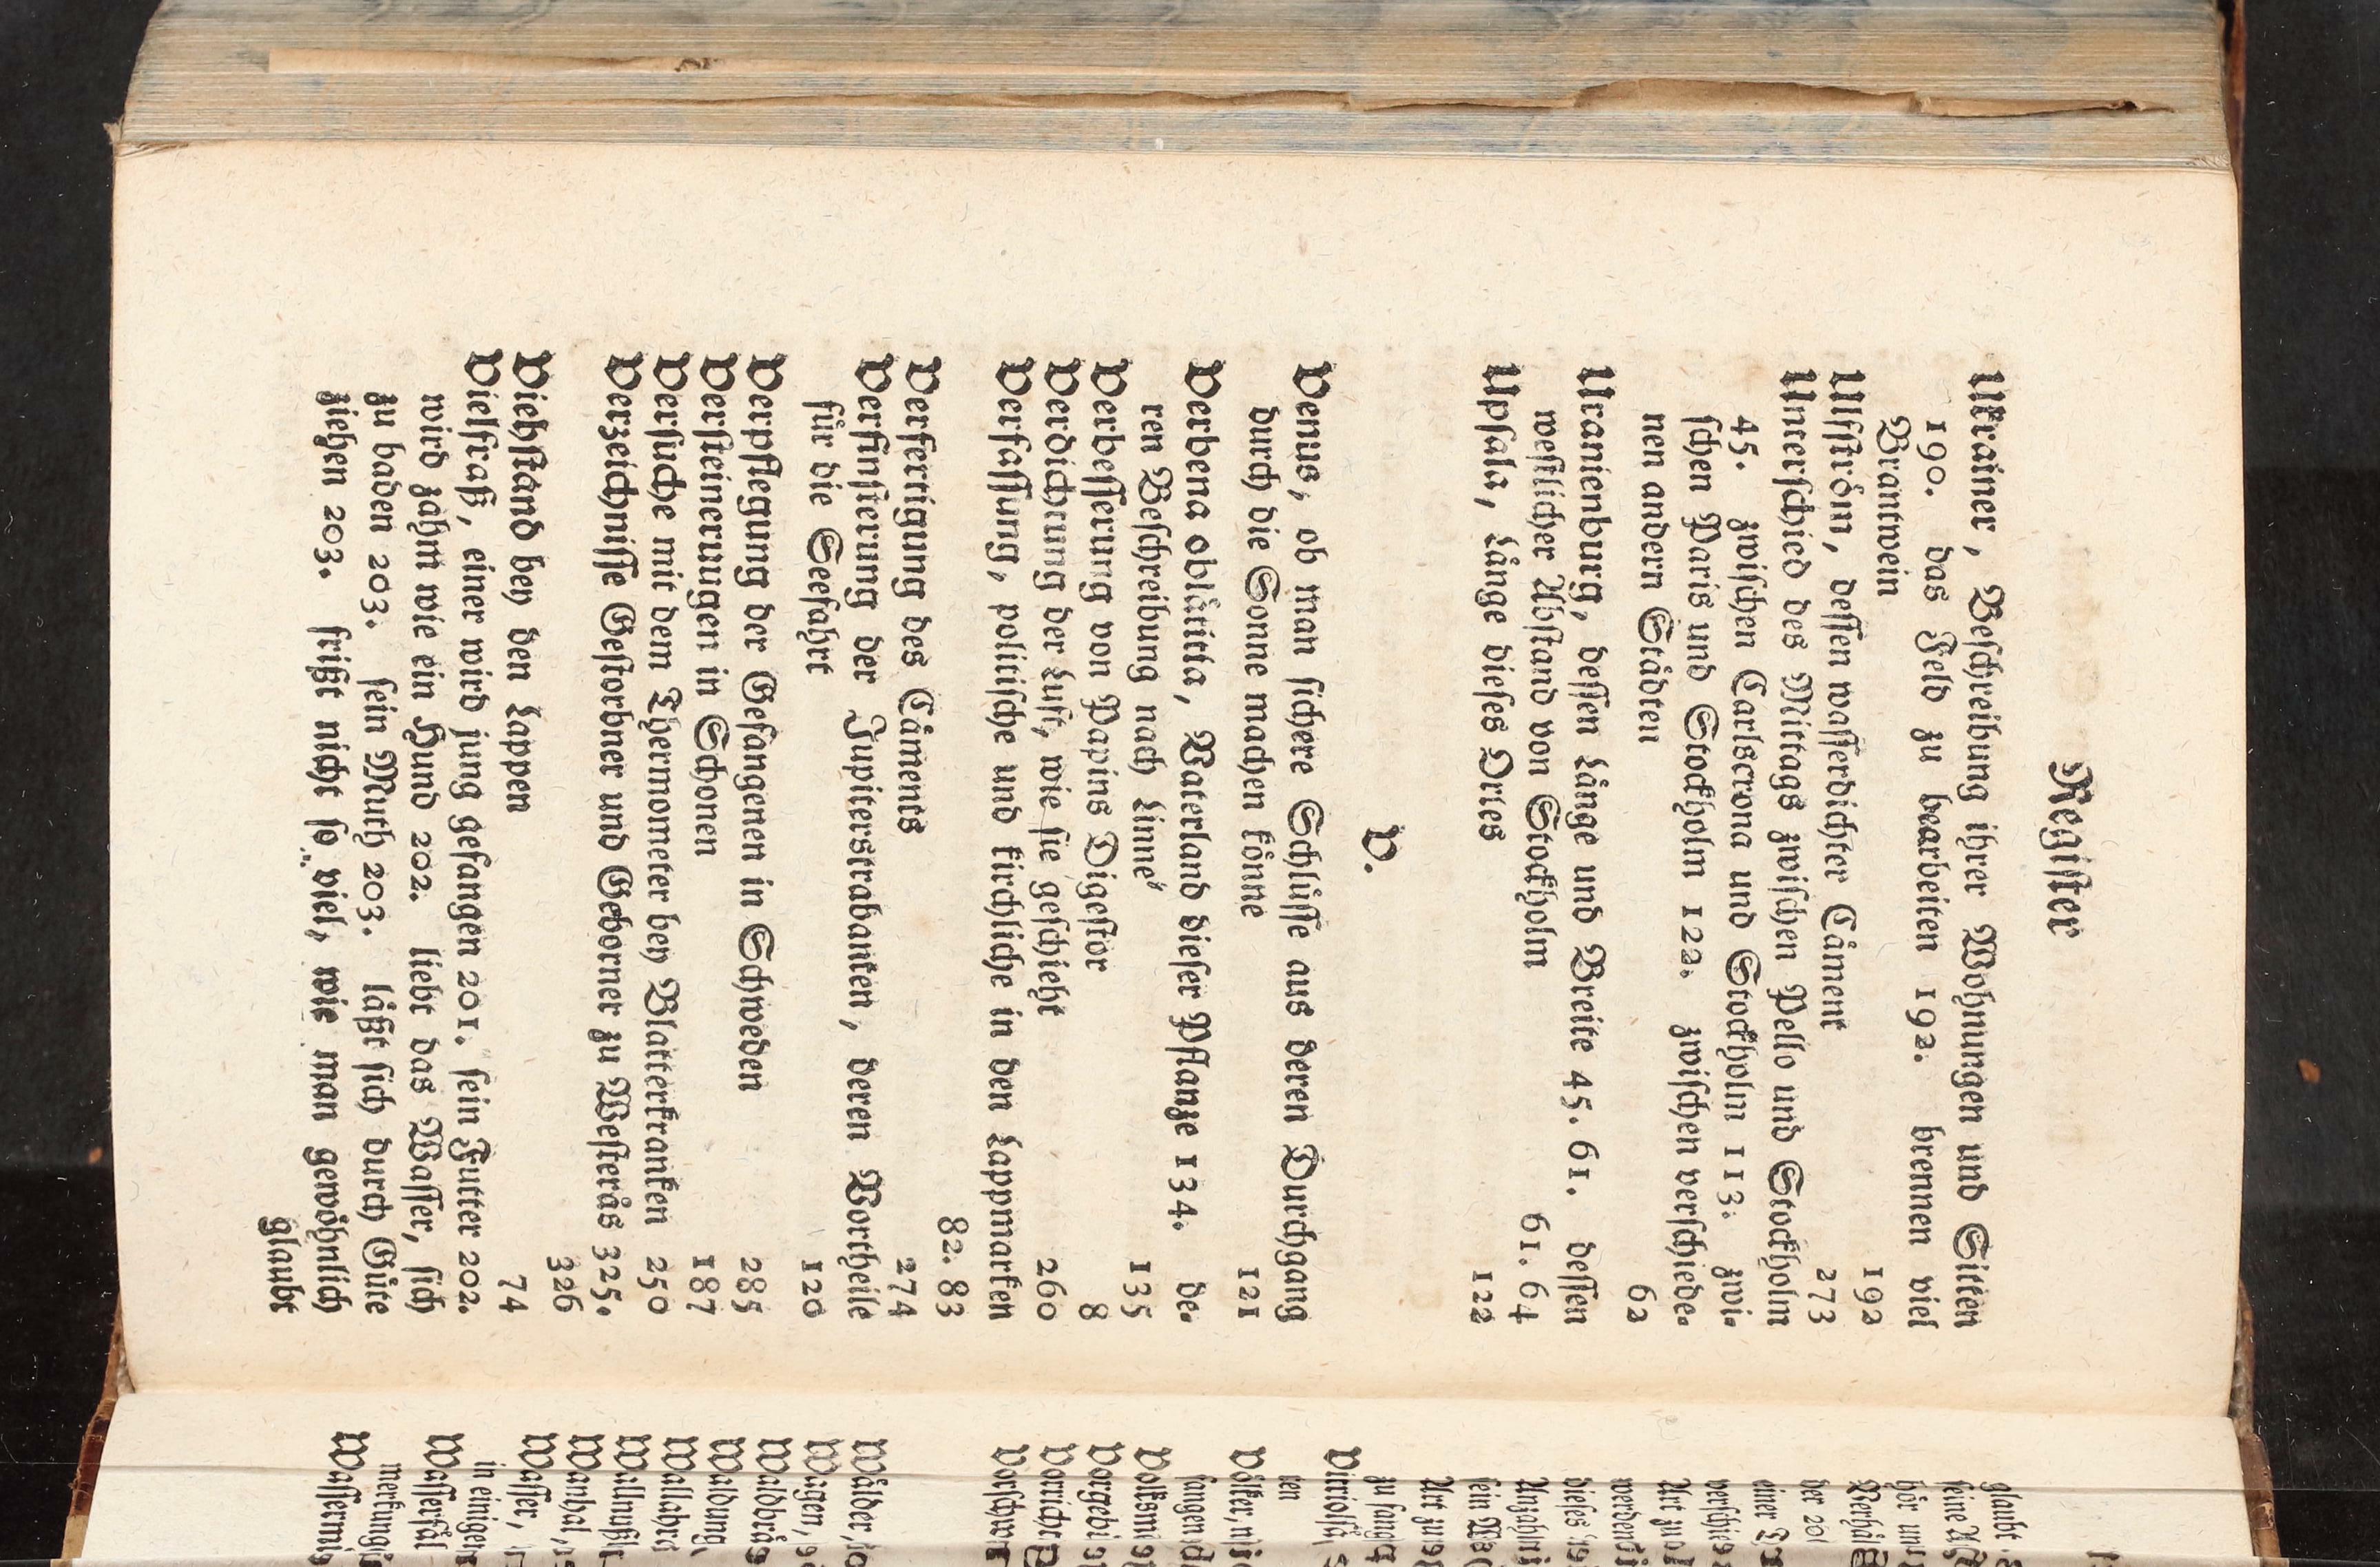 Register
Ukrainer, Beschreibung ihrer Wohnungen und Sitten
190. das Feld zu bearbeiten 192. brennen viel
Brantwein 192
Ulfström, dessen wasserdichter Cäment 273
Unterschied des Mittags zwischen Pello und Stockholm
45. zwischen Carlscrona und Stockholm 113. zwi-
schen Paris und Stockholm 122. zwischen verschiede-
nen andern Städten 62
Uranienburg, dessen Länge und Breite 45. 61. dessen
westlicher Abstand von Stockholm 61. 64
Upsala, Länge dieses Ortes 122
V.
Venus, ob man sichere Schlüsse aus deren Durchgang
durch die Sonne machen könne 121
Verbena oblätitia, Vaterland dieser Pflanze 134. de-
ren Beschreibung nach Linne' 135
Verbesserung von Papins Digestor 8
Verdichtung der Luft, wie sie geschieht 260
Verfassung, politische und kirchliche in den Lappmarken
82. 83
Verfertigung des Cäments 274
Verfinsterung der Jupiterstrabanten, deren Vortheile
für die Seefahrt 120
Verpflegung der Gefangenen in Schweden 285
Versteinerungen in Schonen 187
Versuche mit dem Thermometer bey Blatterkranken 250
Verzeichnisse Gestorbner und Geborner zu Westerås 325.
326
Viehstand bey den Lappen 74
Vielfraß, einer wird jung gefangen 201. sein Futter 202.
wird zahm wie ein Hund 202. liebt das Wasser, sich
zu baden 203. sein Muth 203. läßt sich durch Güte
ziehen 203. frißt nicht so viel, wie man gewöhnlich
glaubt
glaubt
seine
der 20
einer
werden
Art zu
dieses
Anzahl
sein
Art zu
zu fang
Vitriolsä
den
Völker,
fangen
Volksm
Vorgebi
Vorricht
Vorschw
Wälder,
Wagen,
Waldung,
Wallnuß
Wandal,
Wasser,
in einigen
Wasserfäl
merkung
Wassermi